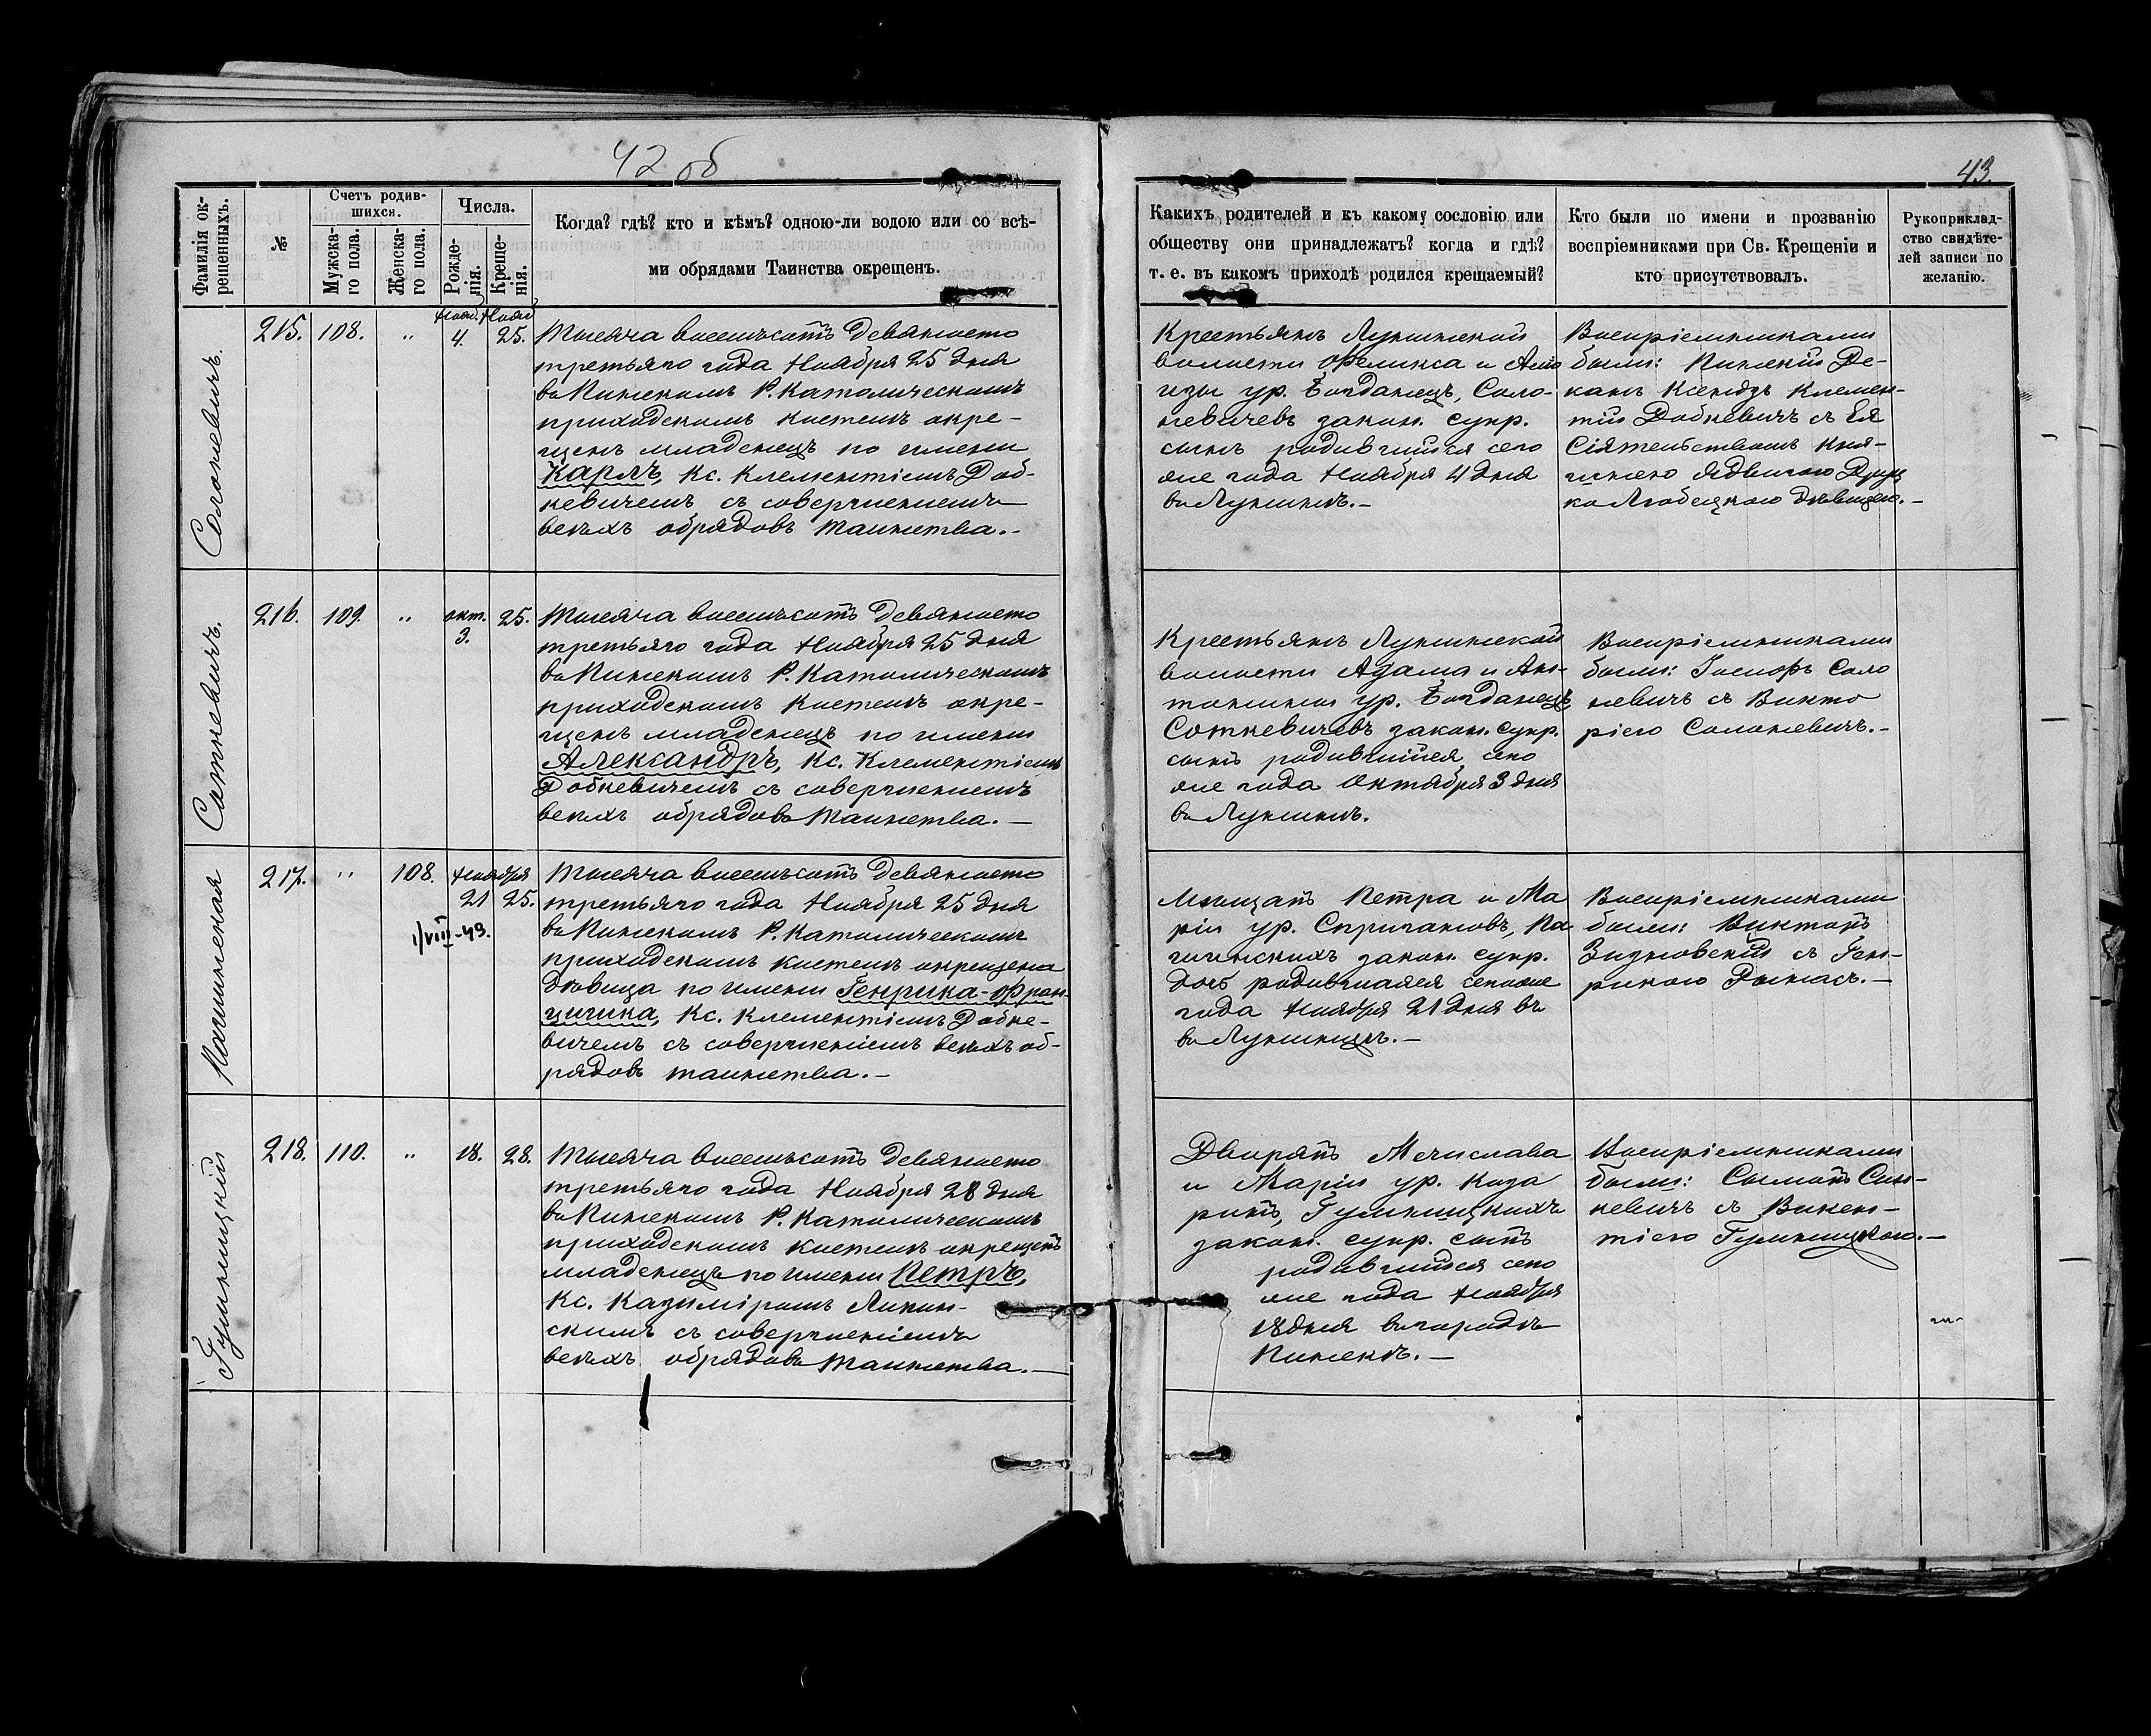 42 об
43.
Фамилія ок-
рещенныхъ.
№
Счетъ родив-
шихся.
Мужска-
го пола.
Женска-
го пола.
Числа.
Рожде-
нія.
Креще-
нія.
Когда? гдѣ? кто и кѣмъ? одною-ли водою или со всѣ-
ми обрядами Таинства окрещенъ.
Какихъ родителей и къ какому сословію или
обществу они принадлежатъ? когда и гдѣ?
т. е. въ какомъ приходѣ родился крещаемый?
Кто были по имени и прозванію
воспріемниками при Св. Крещеніи и
кто присутствовалъ.
Рукоприклад-
ство свидѣте-
лей записи по
желанію.
Солоневичъ.
215. 108. „ Нояб. 4. Нояб. 25.
Тысяча восемьсотъ девяносто
третьяго года Ноября 25 дня
въ Пинскомъ Р. Католическомъ
приходскомъ костелѣ окре-
щенъ младенецъ по имени
Карлъ, Кс. Клементіемъ Доб-
кевичемъ съ совершеніемъ
всѣхъ обрядовъ таинства.-
Крестьянъ Лунинской
волости Феликса и Алоі
изы ур. Богданецъ, Соло-
невичевъ закон. супр.
сынъ родившійся сего
же года Ноября 4 дня
въ Лунинѣ.-
Воспріемниками
были: Пинскій Де-
канъ Ксендзъ Клемен-
тій Добкевичъ съ Ея
Сіятельствомъ Кня-
гинею Ядвигою Друц
ко Любецкою дѣвицею.-
Сотневичъ.
216. 109. „ окт. 3. 25.
Тысяча восемьсотъ девяносто
третьяго года Ноября 25 дня
въ Пинскомъ Р. Католическомъ
приходскомъ костелѣ окре-
щенъ младенецъ по имени
Александръ, Кс. Клементіемъ
Добкевичемъ съ совершеніемъ
всѣхъ обрядовъ таинства.-
Крестьянъ Лунинской
волости Адама и Ан-
тонины ур. Богданецъ
Сотневичевъ закон. супр.
сынъ родившійся сего
же года Октября 3 дня
въ Лунинѣ.
Воспріемниками
были: Іосифъ Соло
невичъ съ Викто
ріею Солоневичъ.-
Пашинская
217. „ 108. Ноября 21 25.
1/VIII-43.
Тысяча восемьсотъ девяносто
третьяго года Ноября 25 дня
въ Пинскомъ Р. Католическомъ
приходскомъ костелѣ окрещена
дѣвица по имени Генрика-Фран-
цишка, Кс. Клементіемъ Добке-
вичемъ съ совершеніемъ всѣхъ об-
рядовъ таинства.-
Мѣщанъ Петра и Ма
ріи ур. Спричановъ, Па
шинскихъ закон. супр.
дочь родившаяся сегоже
года Ноября 21 дня въ
въ Лунинцѣ.-
Воспріемниками
были: Викторъ
съ Ген-
рикою Рымасъ.-
Гумницкій
218. 110. „ 18. 28.
Тысяча восемьсотъ девяносто
третьяго года Ноября 28 дня
въ Пинскомъ Р. Католическомъ
приходскомъ костелѣ окрещенъ
младенецъ по имени Петръ,
Кс. Казиміромъ Липин-
скимъ съ совершеніемъ
всѣхъ обрядовъ таинства.-
Дворянъ Мечислава
и Маріи ур. Каза
ринъ, Гумницкихъ
закон. супр. сынъ
родившійся сего
же года Ноября
18 дня въ городѣ
Пинскѣ.-
Воспріемниками
были:
съ Викен-
тіею Гумницкою.-